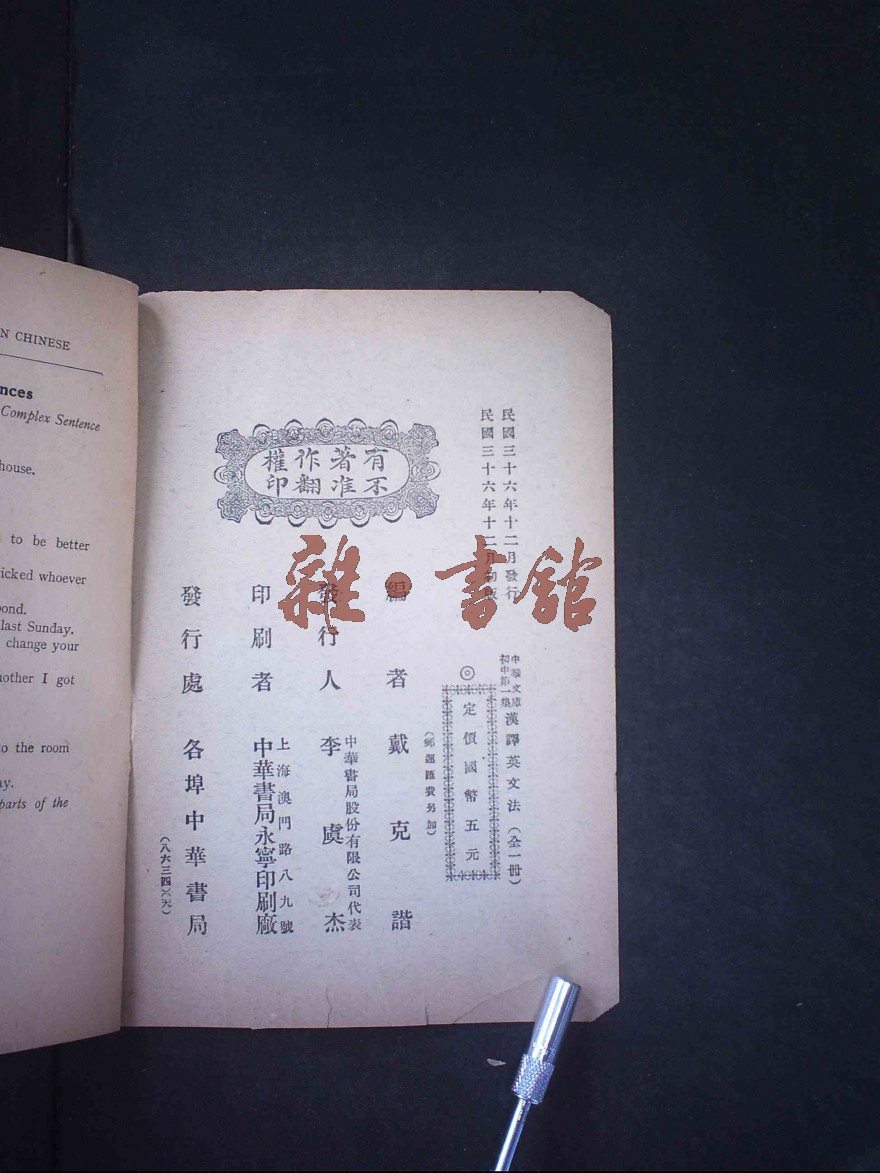 N CHINESE
nces
Complex Sentence
house.
to be better
icked whoever
ond.
last Sunday.
change your
nother I got
to the room
ay.
parts of the
民國三十六年十二月發行
民國三十六年十二月初版
中華文庫
初中第一集
漢譯英文法(全一冊)
◎定價國幣五元
(郵運匯費另加)
有著作權
不准翻印
編者 戴克諧
發行人 李虞杰
中華書局股份有限公司代表
印刷者 中華書局永寧印刷廠
上海澳門路八九號
發行處 各埠中華書局
(八六三四)(天)
雜·書館